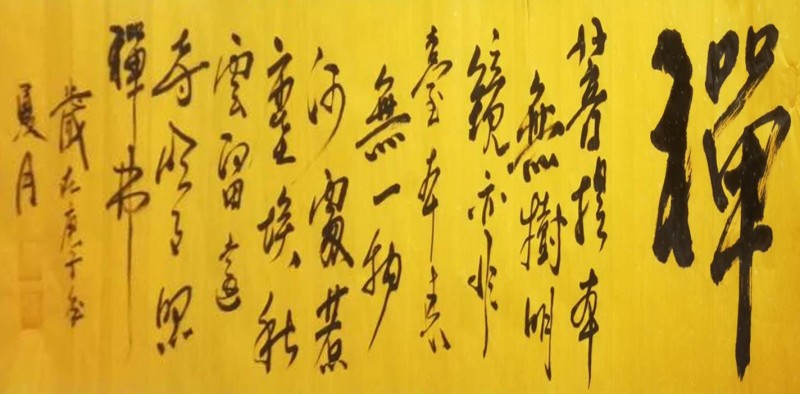 禪
菩提本
無樹明
鏡亦非
臺本来
無一物
何處惹
塵埃秋
雲留遠
寺月照
禪
歲在庚子年
夏月